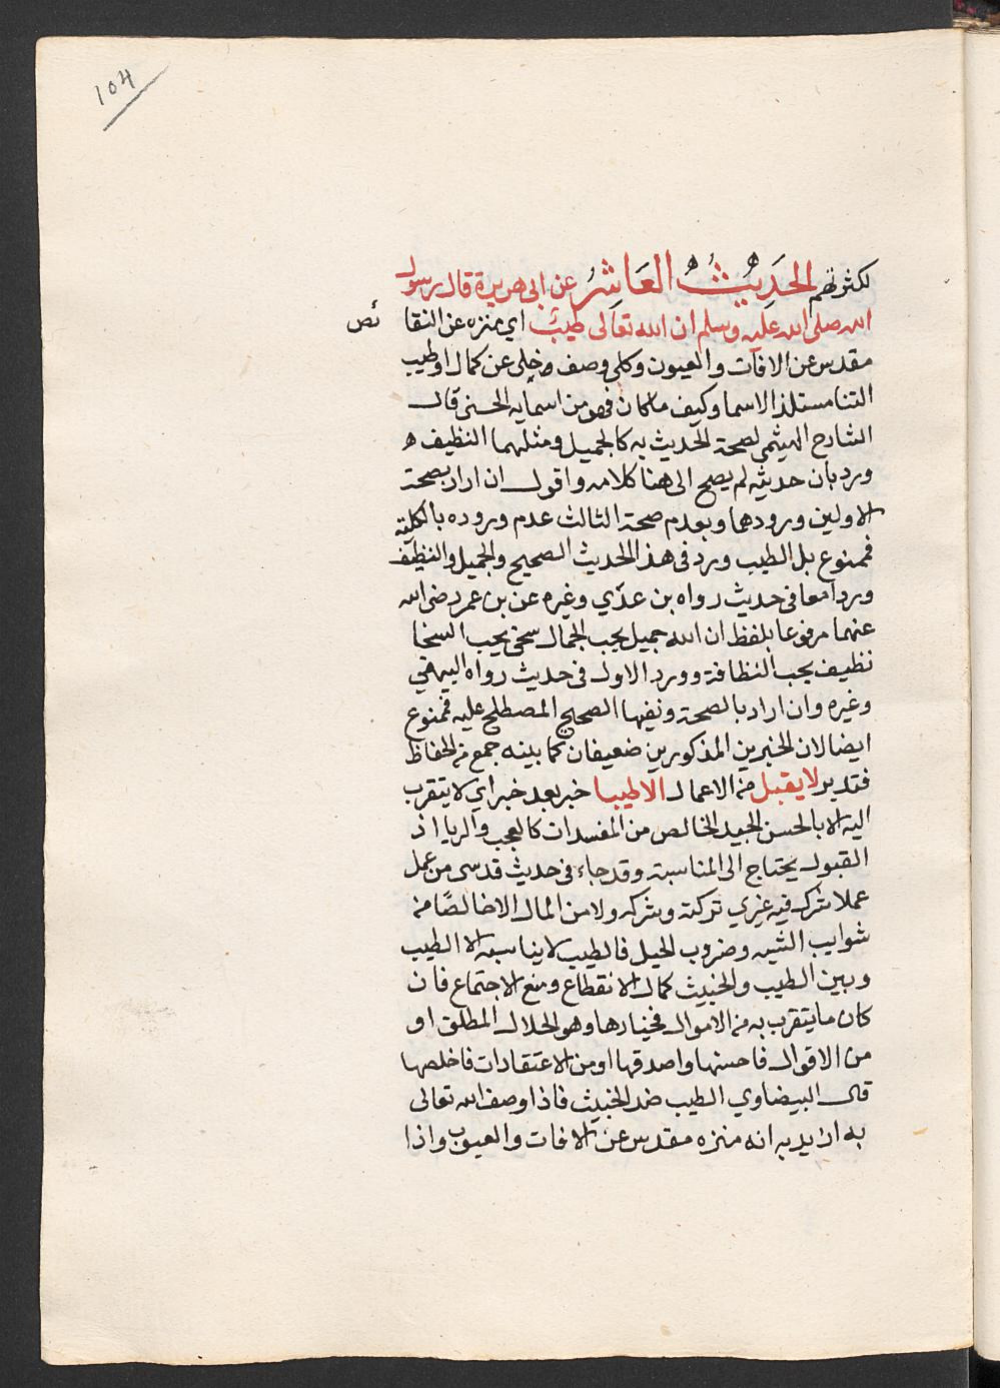 104
لكثرتهم الحَدِيثُ العَاشِرُ عن ابي هريرة قال رسول
الله صلى الله عليه وسلم ان الله تعالى طيب اي منزه عن النقائص
مقدس عن الافات والعيون وكلى وصف وخلى عن كمال او طيب
الثنا مستلذ الاسما وكيف ما كان فهو من اسمايه الحسنى قال
الشارح الهيثمي لصحة الحديث به كالجميل ومثلهما النظيف ه
ورد بان حديثه لم يصح الى هنا كلامه واقول ان اراد بصحة
الاولين ورودها وبعدم صحة الثالث عدم وروده بالكلية
فممنوع بل الطيب ورد في هذ الحديث الصحيح والجميل والنظيف
وردا معا في حديث رواه بن عدّي وغيره عن بن عمر رضى الله
عنهما مرفوعا بلفظ ان الله جميل يحب الجمال سخى يحب السخا
نظيف يحب النظافة وورد الاول في حديث رواه البيهقي
وغيره وان اراد بالصحة ونفيها الصحيح المصطلح عليه فممنوع
ايضا لان الخبرين المذكورين ضعيفان كما بينه جمع من الحفاظ
فتدبر لا يقبل من الاعمال الا طيبا خبر بعد خبر اي لا يتقرب
اليه الا بالحسن الجيد الخالص من المفسدات كالعجب والريا اذ
القبول يحتاج الى المناسبة وقد جاء في حديث قدسى من عمل
عملا شرك فيه غيري تركته وشركه ولا من المال الا خالصًا من
شوايب الشبه وضروب الحيل فالطيب لا يناسبه الا الطيب
وبين الطيب والخبيث كمال الانقطاع ومنع الاجتماع فان
كان ما يتقرب به من الاموال فخيارها وهو الحلال المطلق او
من الاقوال فاحسنها واصدقها او من الاعتقادات فاخلصها
قال البيضاوي الطيب ضد الخبيث فاذا وصف الله تعالى
به اريد به انه منزه مقدس عن الافات والعيوب واذا